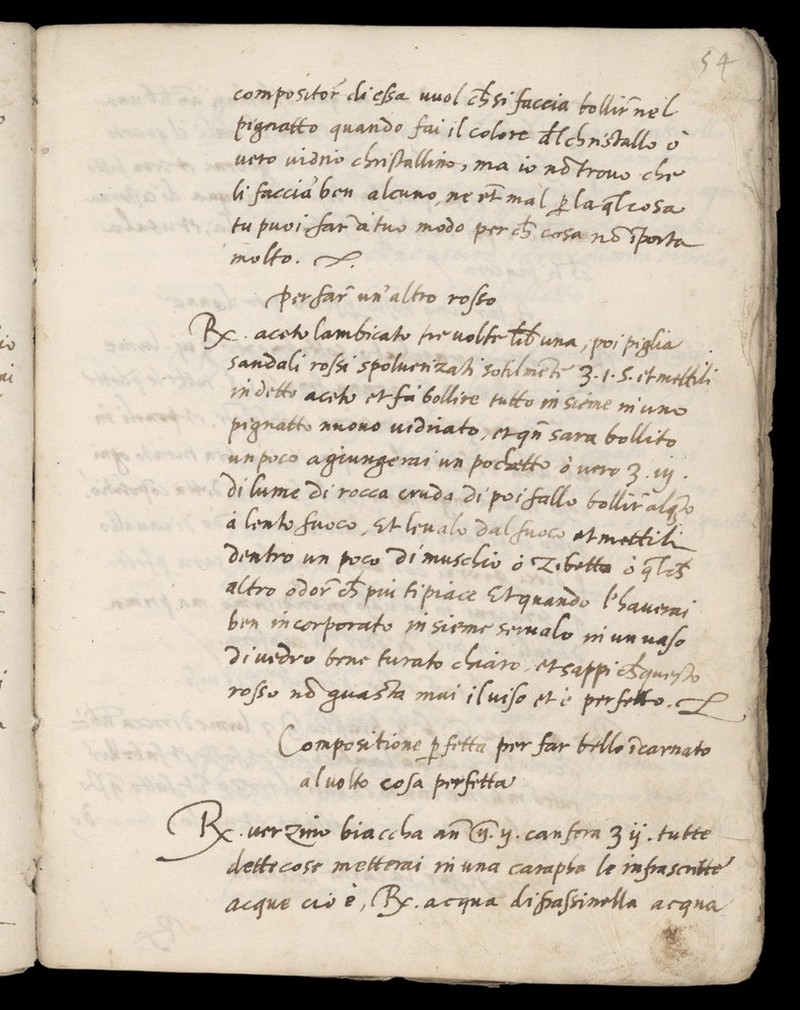 54
compositor̃ di essa vuol ch̃ si faccia bollir̃ nel
pignatto quando fai il colore d̃l christallo ò
vero vidrio christallino, ma io nõ trovo che
li faccia ben alcuno, ne et̃ mal p̱ la q̃l cosa
tu puoi far̃ à tuo modo per ch̃ cosa nõ ĩporta
molto.
Per far̃ un' altro rosso
Rx. aceto lambicato tre volte lib̃ una, poi piglia
sandali rossi spolverizati sotilmẽte ʒ. 1. s. et mettili
in detto aceto et fà bollire tutto insieme in uno
pignatto nuovo vidriato, et qñ sara bollito
un poco agiungerai un pochetto ò vero ʒ. iij.
di lume di rocca cruda di poi fallo bollir̃ alq̃to
à lento fuoco, Et levalo dal fuoco et mettili
dentro un poco di muschio ò Zibetto ò q̃lch̃
altro odor̃ ch̃ piu ti piace Et quando l'haverai
ben incorporato insieme servalo in un vaso
di vedro bene turato chiaro, et sappi ch̃ questo
rosso nõ guasta mai il viso et è perfetto.
Compositione p̱fetta per far bello ĩcarnato
al volto cosa perfetta
Rx. verzino biaccha añ ij. canfora ʒ ij. tutte
dette cose metterai in una carapha le infrascritte
acque cio è, Rx. acqua di frassinella acqua